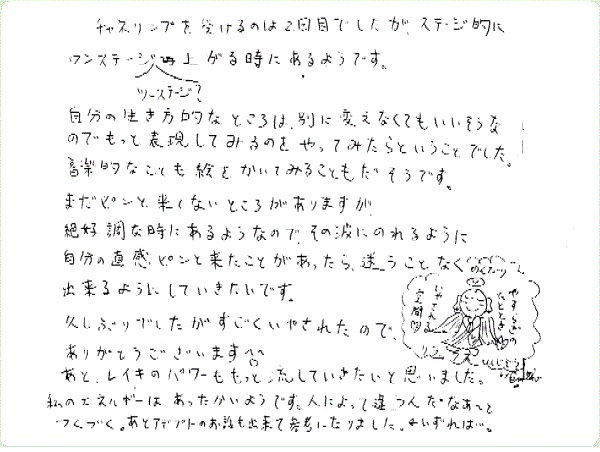 チャネリングを受けるのは2回目でしたが、ステージ的に
ワンステージ上がる時にあるようです。
ツーステージ?
自分の生き方的なところは、別に変えなくてもいいそうな
のでもっと表現してみるのをやってみたらということでした。
音楽的なことも絵をかいてみることもだそうです。
まだピンと来てないところがありますが、
絶好調な時にあるようなので、その波にのれるように
自分の直感、ピンと来たことがあったら、迷うことなく
出来るようにしていきたいです。
久しぶりでしたがすごくいやされたので、
ありがとうございます^^
あと、レイキのパワーももっと流していきたいと思いました。
私のエネルギーはあったかいようです。人によって違うんだなあ〜と
つくづく。あとアデプトのお話も出来て参考になりました。いずれは…。
やすらぎの
ひとときを
いやされる
空間的
リラックス